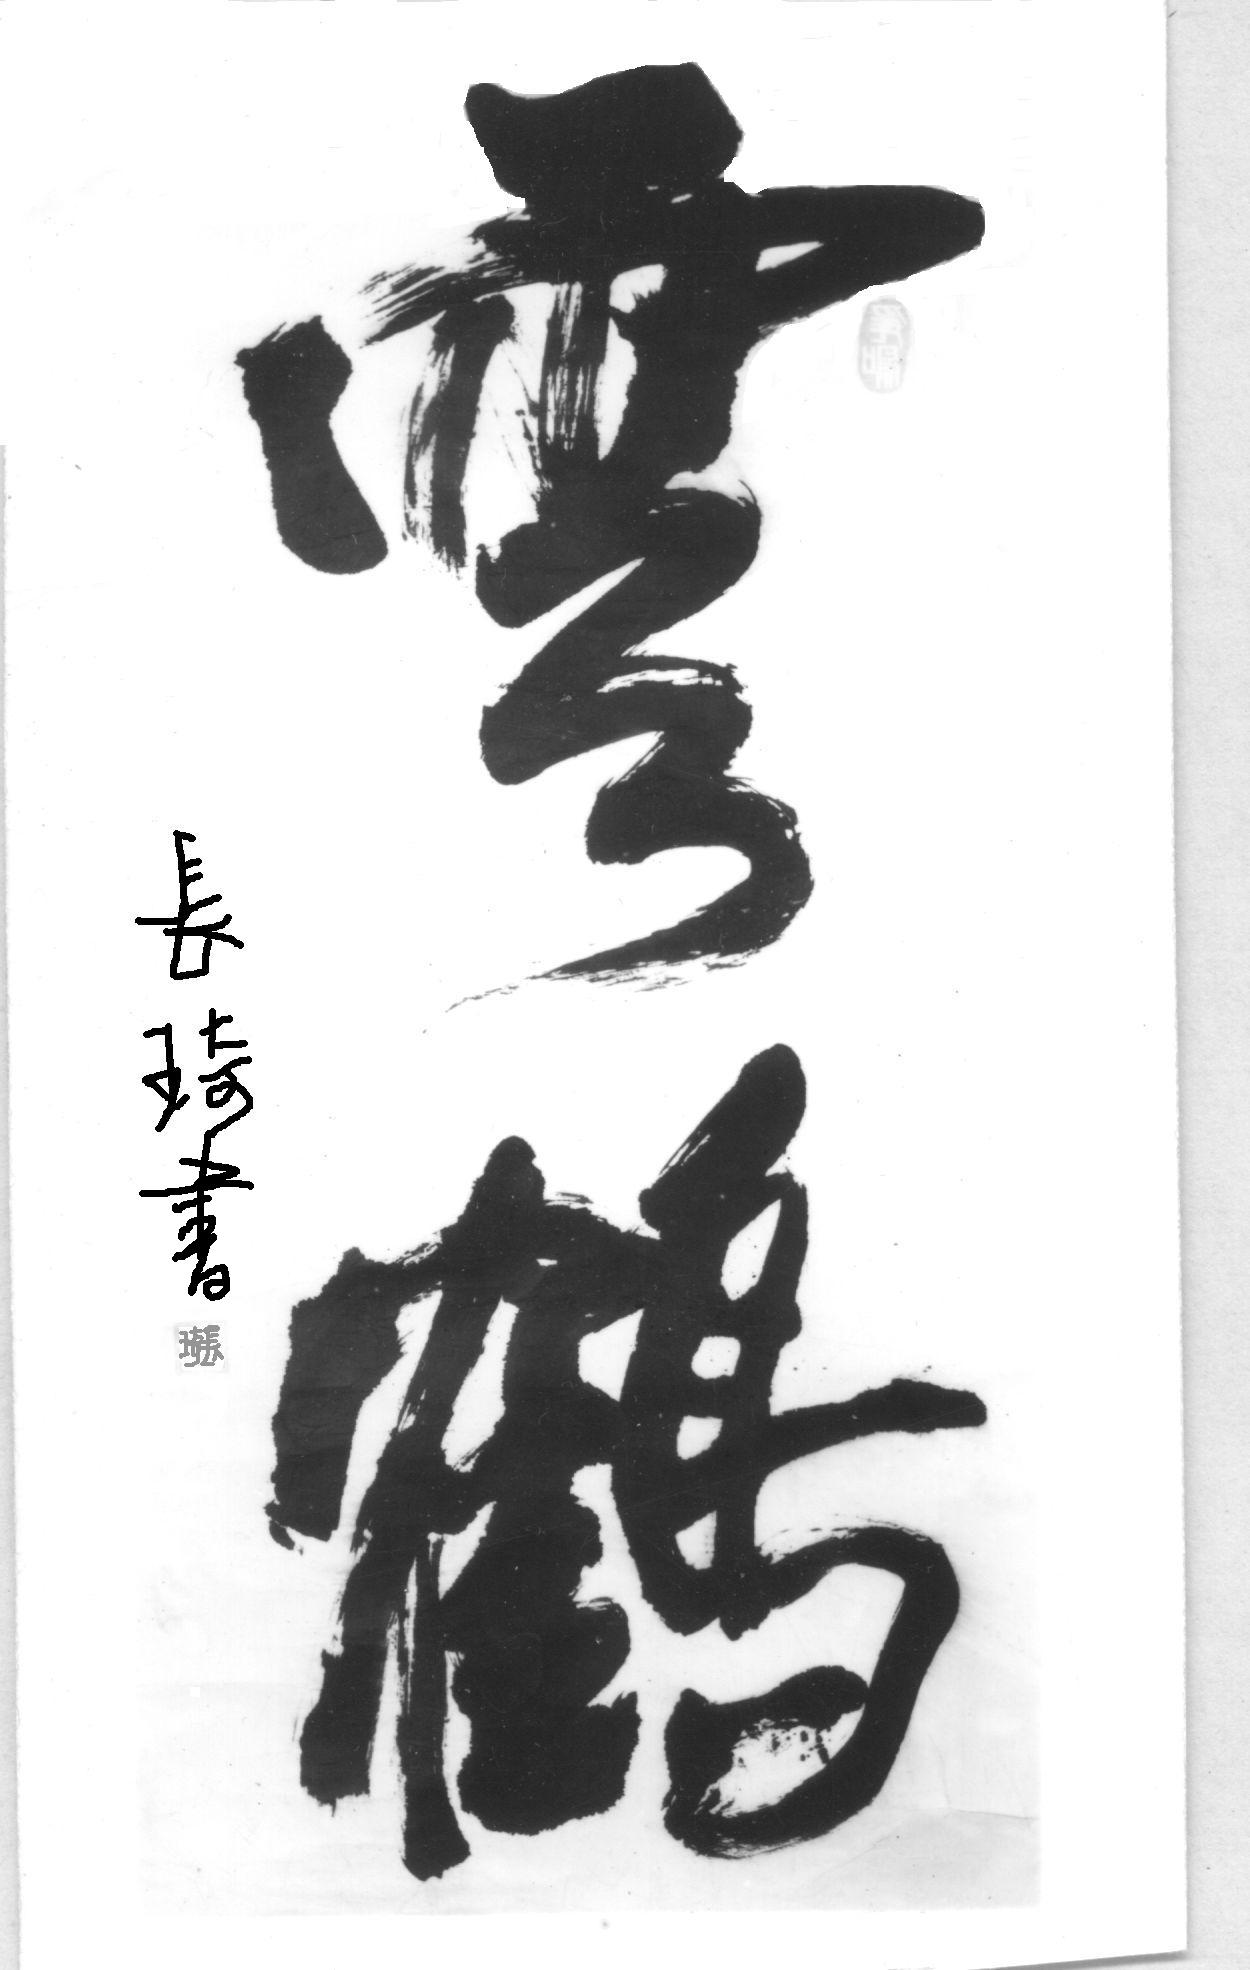 雲鶴
長琦書